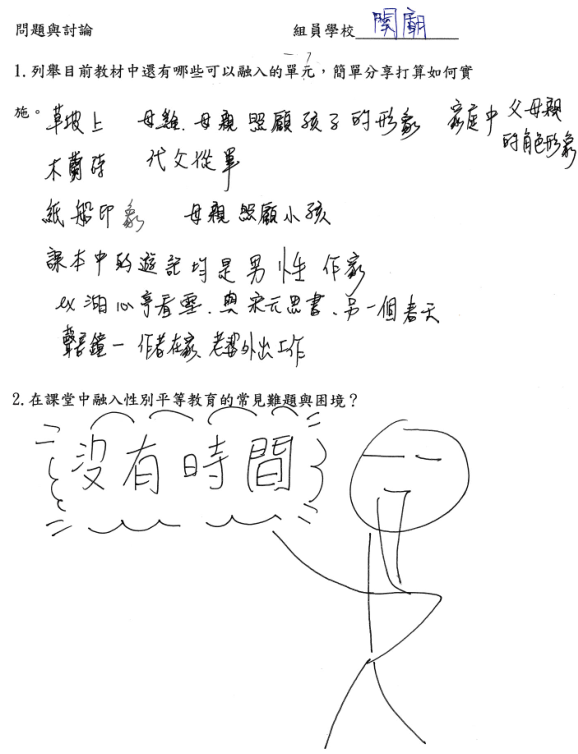 問題與討論 組員學校 関廟
1.列舉目前教材中還有哪些可以融入的單元,簡單分享打算如何實
施。草坡上 母雞.母親照顧孩子的形象 家庭中父母親
的角色形象
木蘭詩 代父從軍
紙船印象 母親照顧小孩
課本中的遊記均是男性作家
ex 湖心亭看雪.與宋元思書.另一個春天
聲音鐘— 作者在家 老婆外出工作
2.在課堂中融入性別平等教育的常見難題與困境?
沒有時間